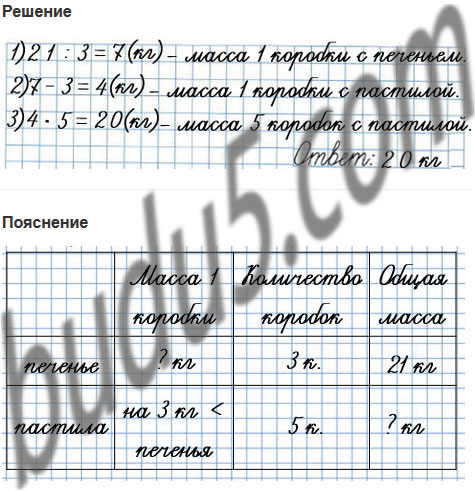 Решение
1) 21 : 3 = 7 (кг) – масса 1 коробки с печеньем.
2) 7 - 3 = 4 (кг) – масса 1 коробки с пастилой.
3) 4 · 5 = 20 (кг) – масса 5 коробок с пастилой.
Ответ: 20 кг
Пояснение
Масса 1 Количество Общая
коробки коробок масса
печенье ? кг 3 к. 21 кг
на 3 кг <
пастила 5 к. ? кг
печенья
budu5.com